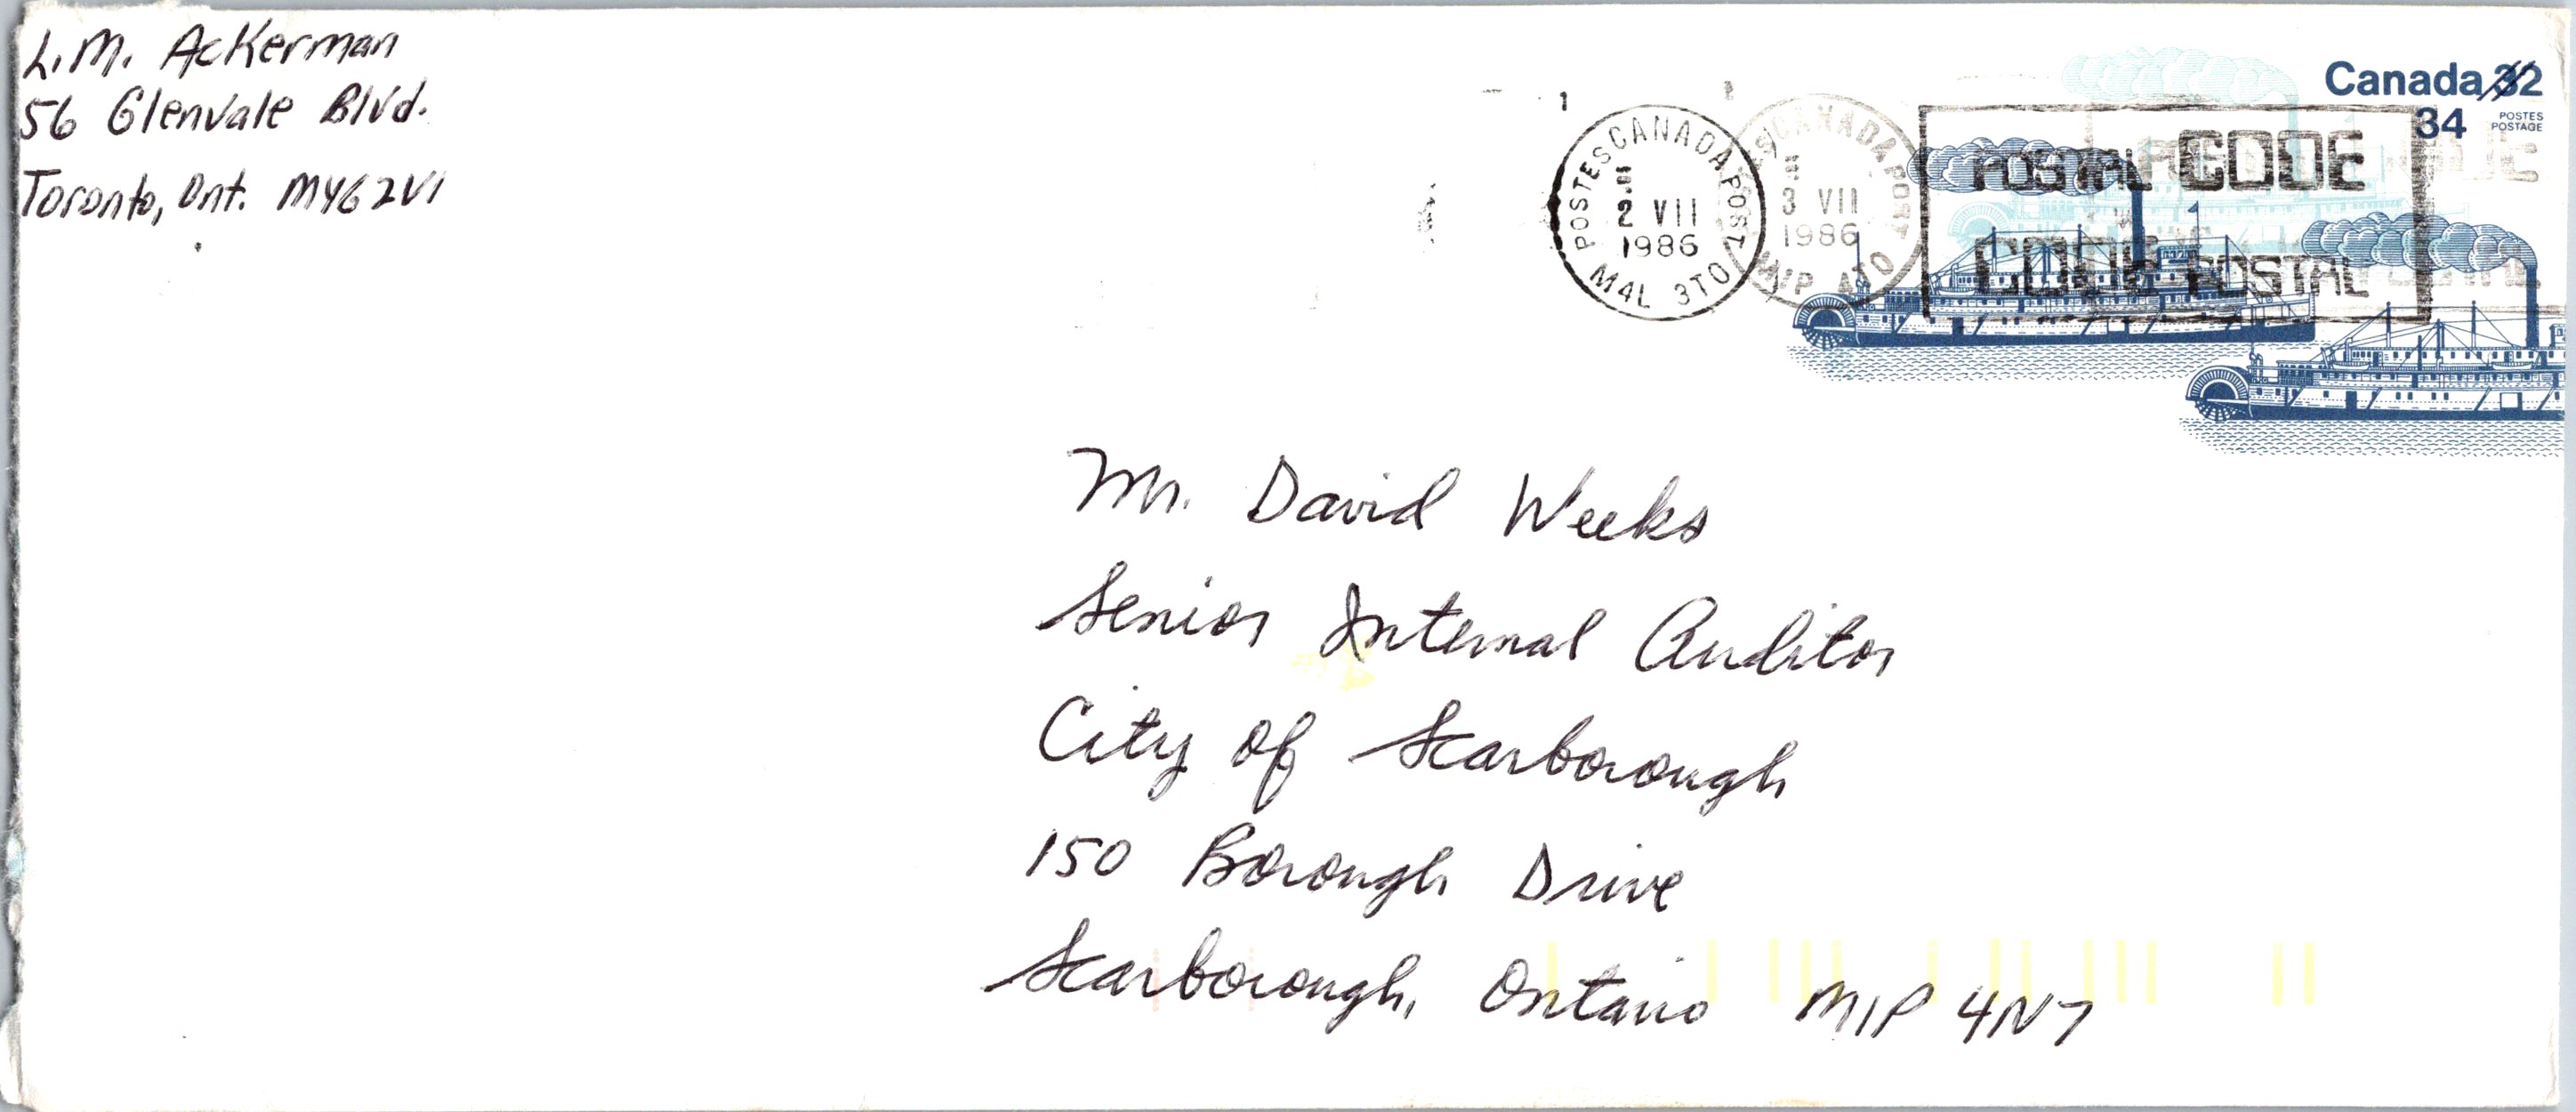 L.M. Ackerman
56 Glenvale Blvd.
Toronto, Ont. M4G 2V1
Canada 32
34
POSTES
POSTAGE
1
POSTES CANADA POST
2 VII
1986
M4L 3T0
CANADA POST
3 VII
1986
M1P 4T0
POSTAL CODE
CODE POSTAL
Mr. David Weeks
Senior Internal Auditor
City of Scarborough
150 Borough Drive
Scarborough, Ontario M1P 4N7